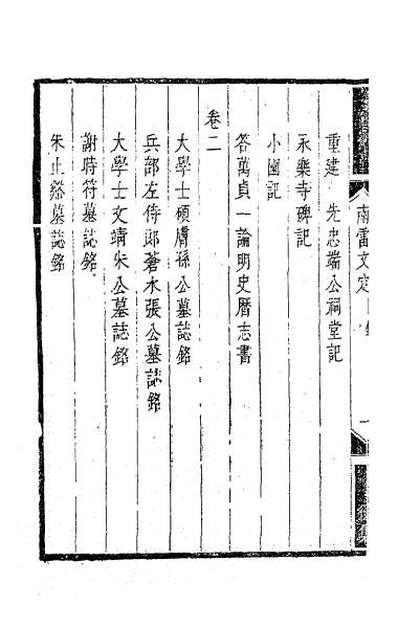 南雷文定
重建　先忠端公祠堂記
永樂寺碑記
小園記
答萬貞一論明史曆志書
卷二
大學士碩膚孫公墓誌銘
兵部左侍郎蒼水張公墓誌銘
大學士文靖朱公墓誌銘
謝時符墓誌銘
朱止谿墓誌銘